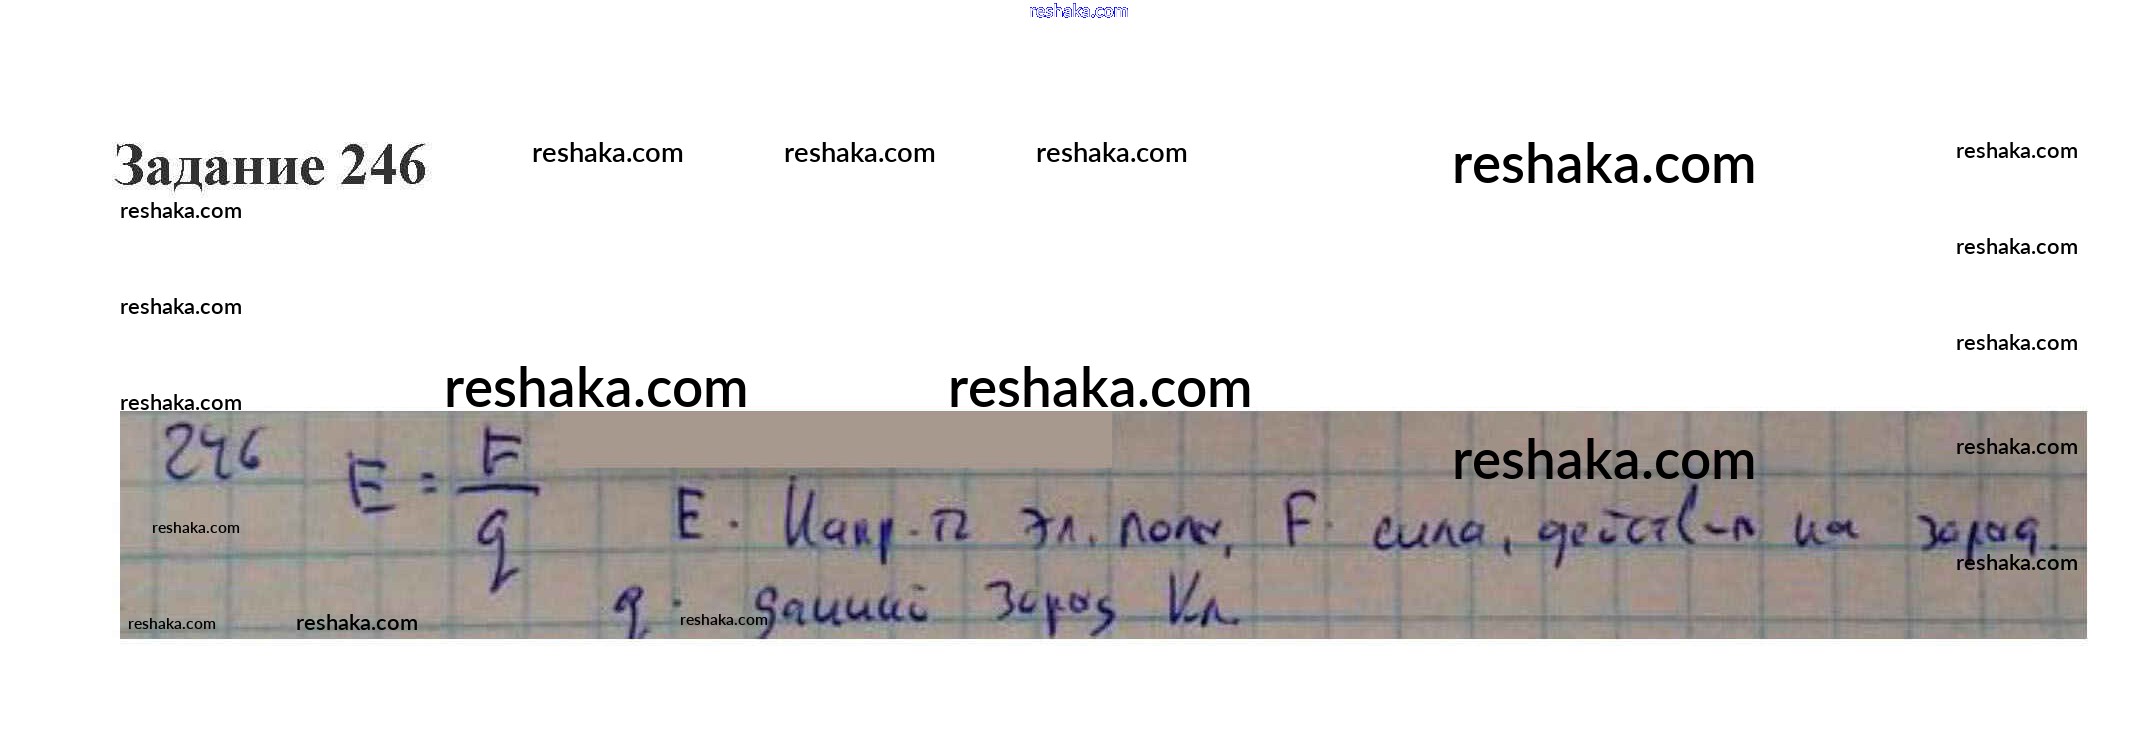 reshaka.com
Задание 246 reshaka.com reshaka.com reshaka.com reshaka.com reshaka.com
reshaka.com
reshaka.com
reshaka.com
reshaka.com
reshaka.com reshaka.com reshaka.com
246 E = F/q reshaka.com reshaka.com
reshaka.com E - Напр-ть эл. поля, F - сила, действ-я на заряд.
reshaka.com
q - данный заряд Кл.
reshaka.com reshaka.com reshaka.com